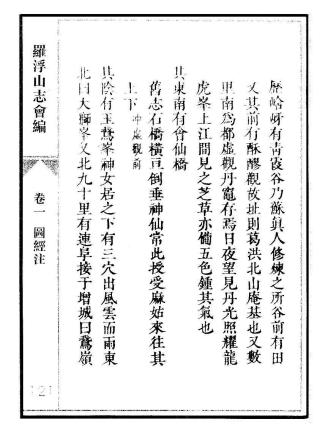 歷峆岈有青霞谷乃蘇眞人修煉之所谷前有田
又其前有酥醪觀故址則葛洪北山庵基也又數
里南爲都虛觀丹竈存焉日夜望見丹光照耀龍
虎峯上江間見之芝草亦葡五色鍾其氣也
其東南有會仙橋
舊志石橋橫亘倒垂神仙常此授受麻姑來往其
上下冲虛觀前
其陰有玉鵞峯神女居之下有三穴出風雲而兩東
北曰大聯峯又北九十里有連阜接于增城曰鵞嶺
羅浮山志會編
卷一 圖經注
12